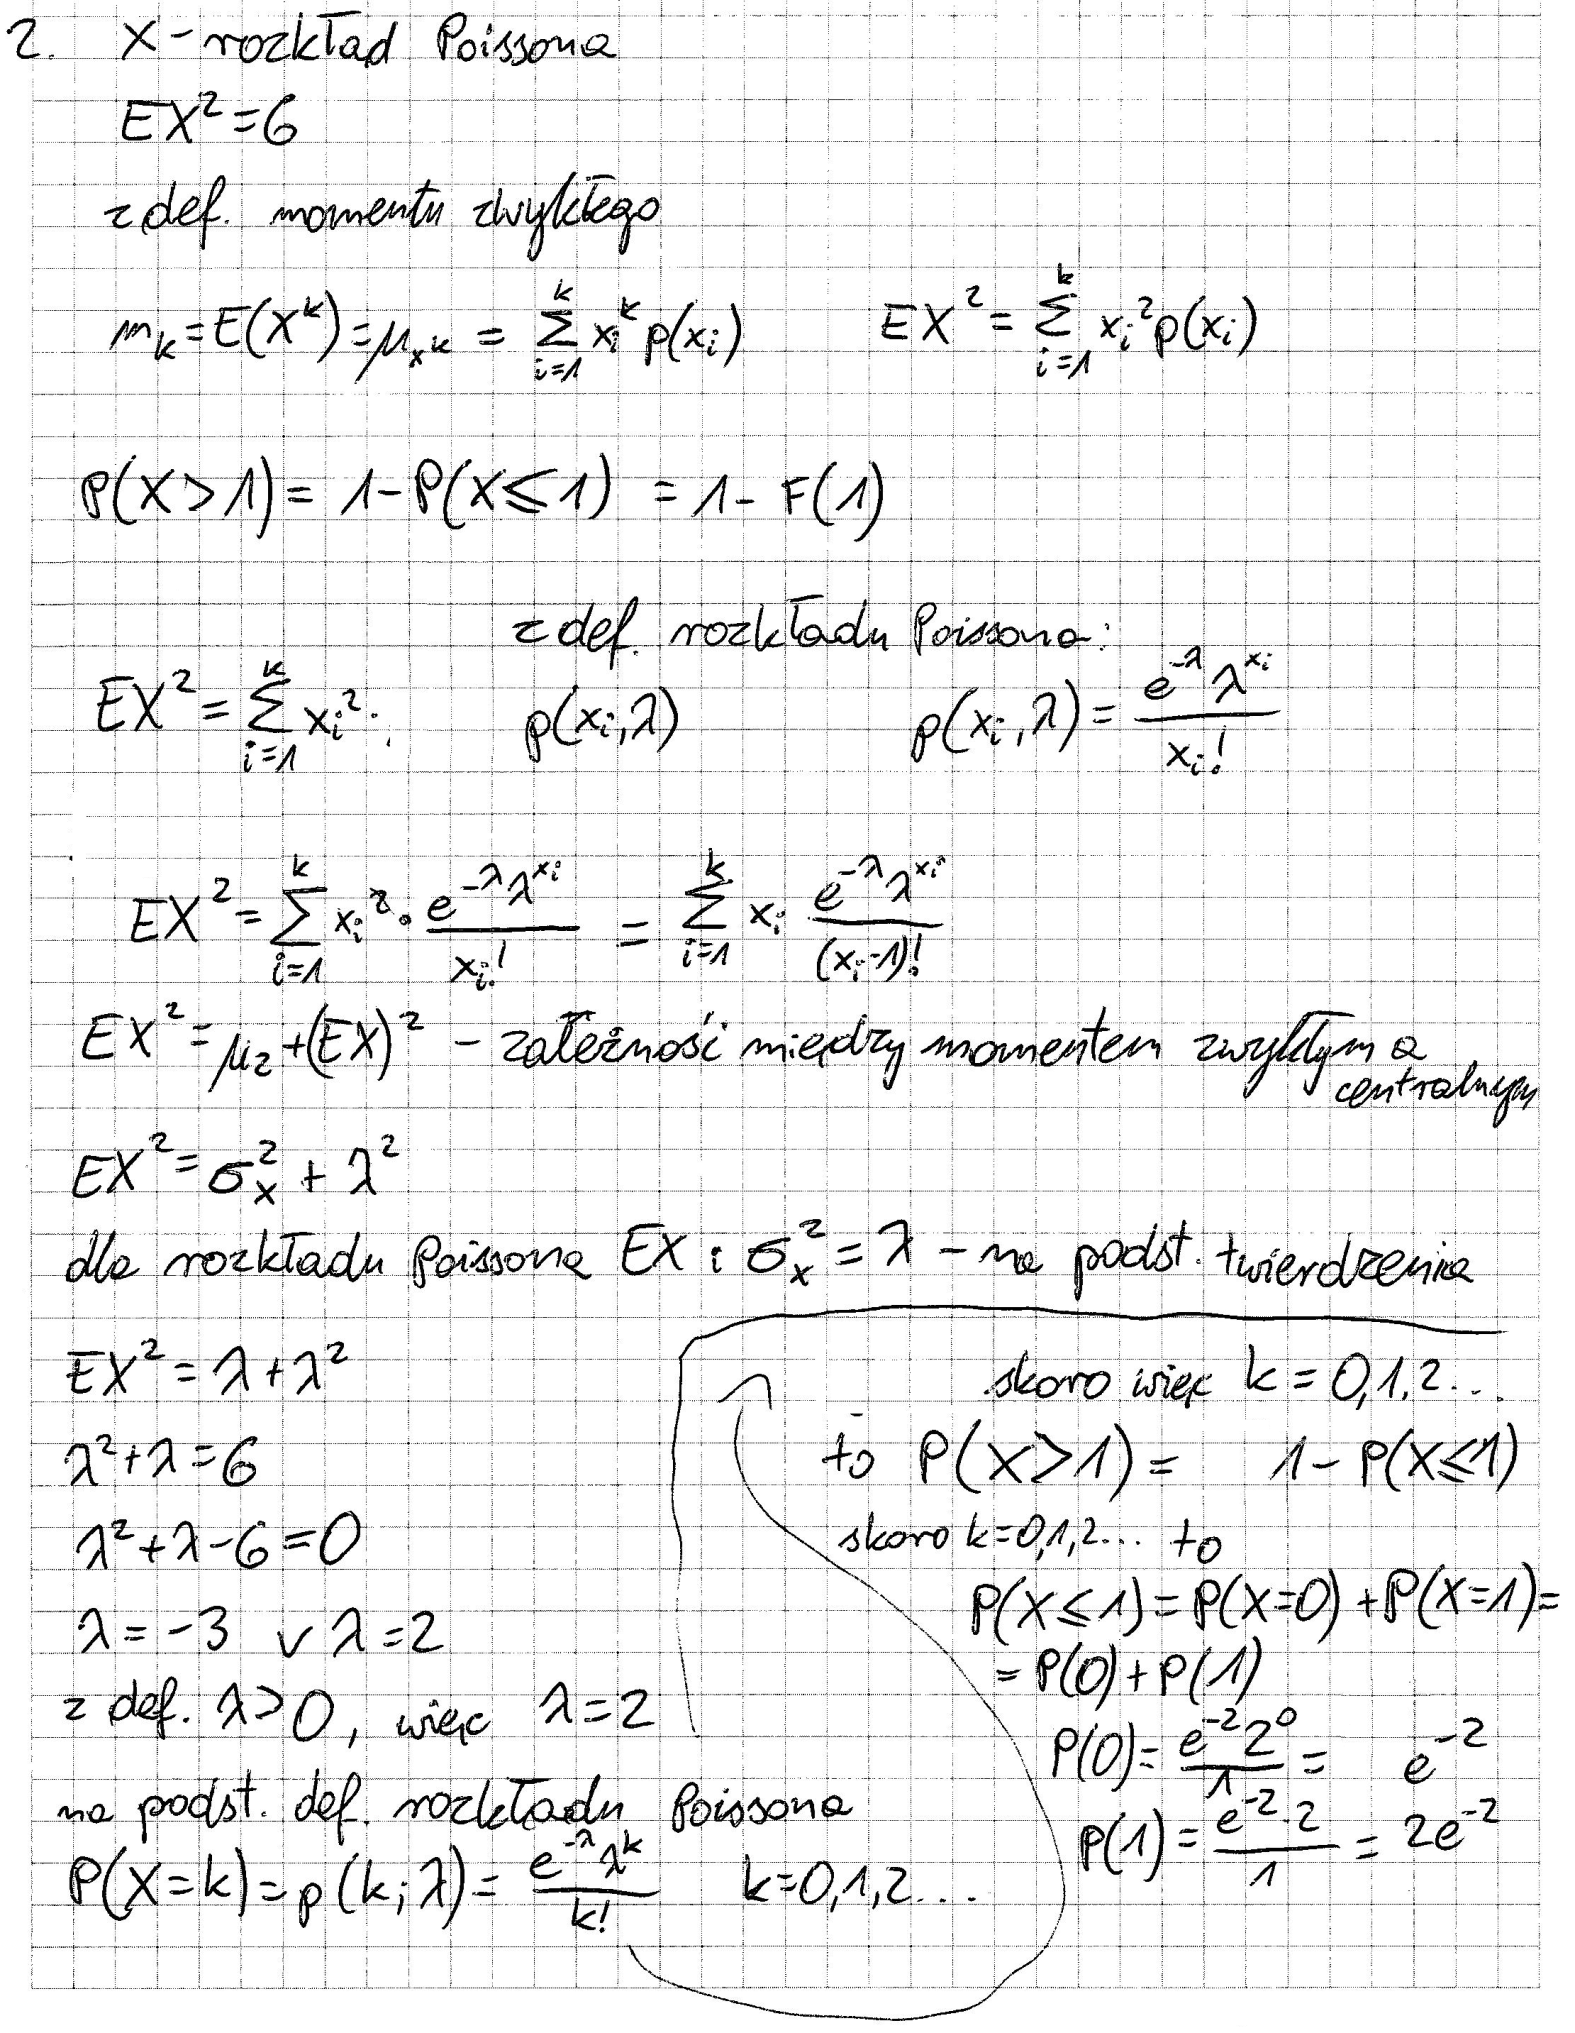 2. X - rozkład Poissona
EX² = 6
z def. momentu zwykłego
m_k = E(X^k) = μ_{x^k} = ∑_{i=1}^{k} x_i^k p(x_i)    EX² = ∑_{i=1}^{k} x_i² p(x_i)
P(X > 1) = 1 - P(X ≤ 1) = 1 - F(1)
z def. rozkładu Poissona:
EX² = ∑_{i=1}^{k} x_i² ·    p(x_i, λ)    p(x_i, λ) = \frac{e^{-λ} λ^{x_i}}{x_i!}
EX² = ∑_{i=1}^{k} x_i² · \frac{e^{-λ} λ^{x_i}}{x_i!} = ∑_{i=1}^{k} x_i \frac{e^{-λ} λ^{x_i}}{(x_i-1)!}
EX² = μ_2 + (EX)² - zależność między momentem zwykłym a
centralnym
EX² = σ_x² + λ²
dla rozkładu Poissona EX i σ_x² = λ - na podst. twierdzenia
EX² = λ + λ²
λ² + λ = 6
λ² + λ - 6 = 0
λ = -3 ∨ λ = 2
z def. λ > 0, więc λ = 2
na podst. def. rozkładu Poissona
P(X = k) = p(k; λ) = \frac{e^{-λ} λ^k}{k!}    k = 0,1,2...
skoro więc k = 0,1,2...
to P(X > 1) = 1 - P(X ≤ 1)
skoro k = 0,1,2... to
P(X ≤ 1) = P(X=0) + P(X=1) =
= P(0) + P(1)
P(0) = \frac{e^{-2} 2^0}{1} = e^{-2}
P(1) = \frac{e^{-2} · 2}{1} = 2e^{-2}